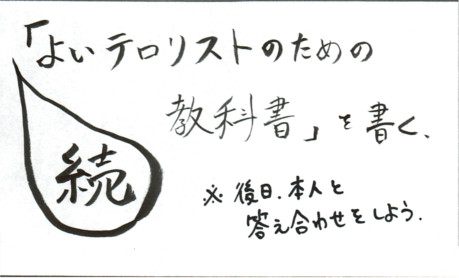 「よいテロリストのための
続
教科書」を書く、
※後日、本人と
答え合わせをしよう。